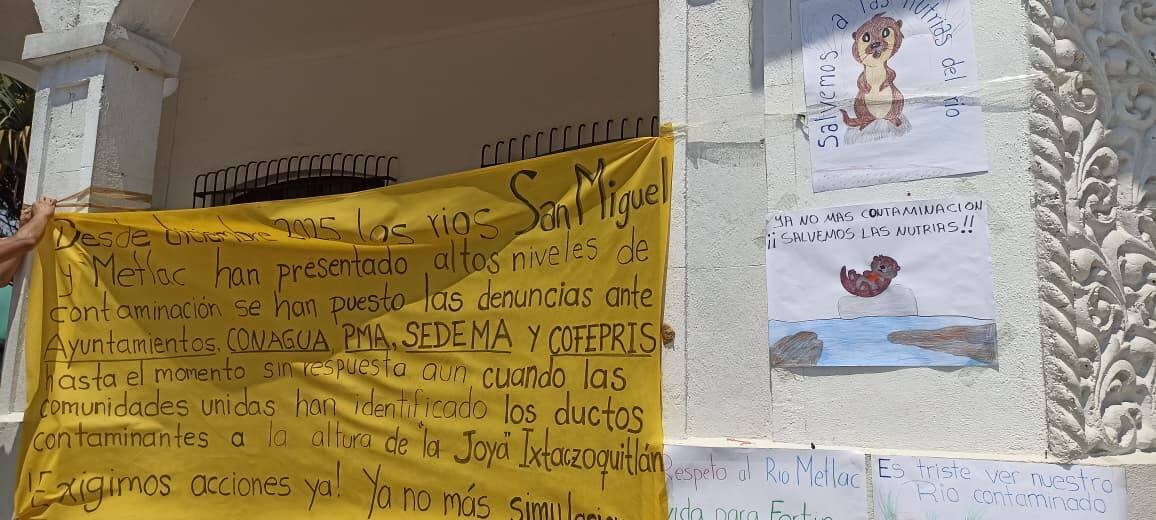 Desde diciembre 2025 los rios San Miguel
y Metlac han presentado altos niveles de
contaminación se han puesto las denuncias ante
Ayuntamientos, CONAGUA, PMA, SEDEMA Y COFEPRIS
hasta el momento sin respuesta aun cuando las
comunidades unidas han identificado los ductos
contaminantes a la altura de "la Joya" Ixtaczoquitlán
¡Exigimos acciones ya! Ya no más
Salvemos a las nutrias del rio
YA NO MAS CONTAMINACION
¡¡ SALVEMOS LAS NUTRIAS!!
Respeto al Rio Metlac
vida para Fortin
Es triste ver nuestro
Rio contaminado